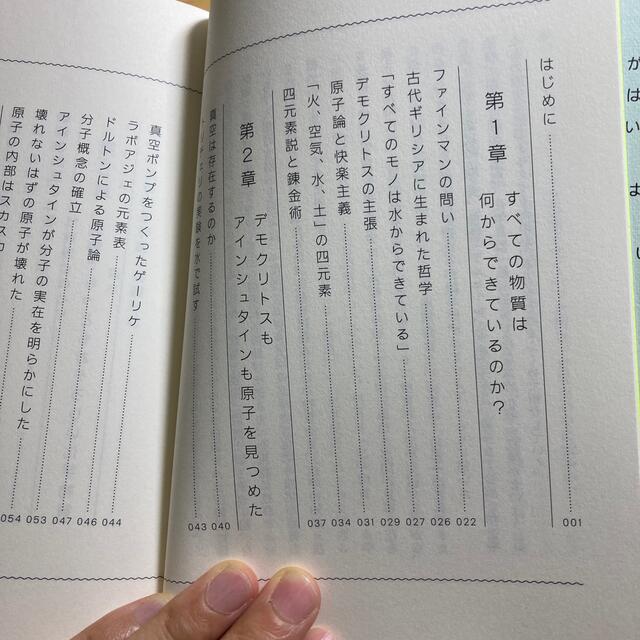 はじめに 001
第1章 すべての物質は
何からできているのか？
ファインマンの問い 022
古代ギリシアに生まれた哲学 026
「すべてのモノは水からできている」 027
デモクリトスの主張 029
原子論と快楽主義 031
「火、空気、水、土」の四元素 034
四元素説と錬金術 037
第2章 デモクリトスも
アインシュタインも原子を見つめた
真空は存在するのか 040
の実験を水で試す 043
真空ポンプをつくったゲーリケ 044
ラボアジェの元素表
ドルトンによる原子論 046
分子概念の確立
アインシュタインが分子の実在を明らかにした 047
壊れないはずの原子が壊れた 053
原子の内部はスカスカ 054
が
は
い
よ
い